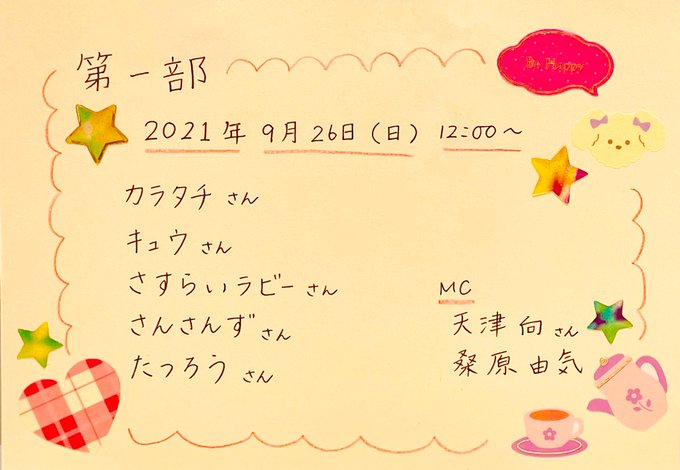 第一部
Be Happy
2021年 9月26日(日) 12:00〜
カラタチさん
キュウさん
さすらいラビーさん
さんさんずさん
たつろうさん
MC
天津向さん
桑原由気